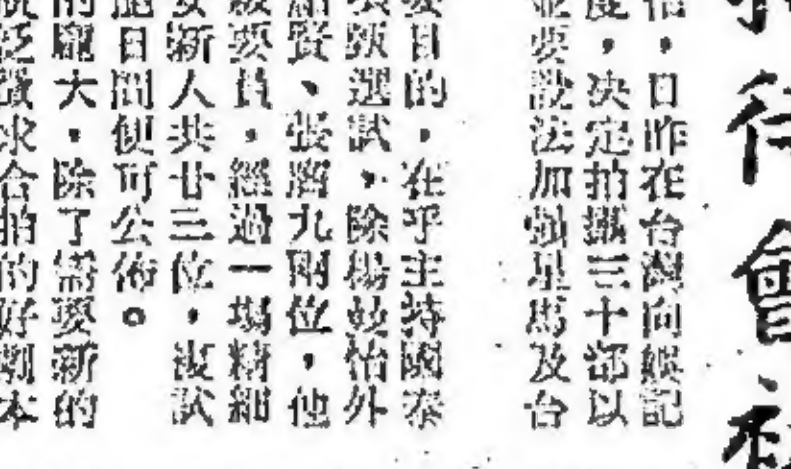 待會
,日昨在台灣向娛記
度,決定拍攝三十部以
並要設法加強星馬及台
要目的,在乎主持國泰
甄選試,除楊曼怡外
賢、張濟九兩位,他
級要員,經過一場精細
女新人共廿三位,複試
日間便可公佈。
的龐大,除了需要新的
泛徵求合拍的好劇本